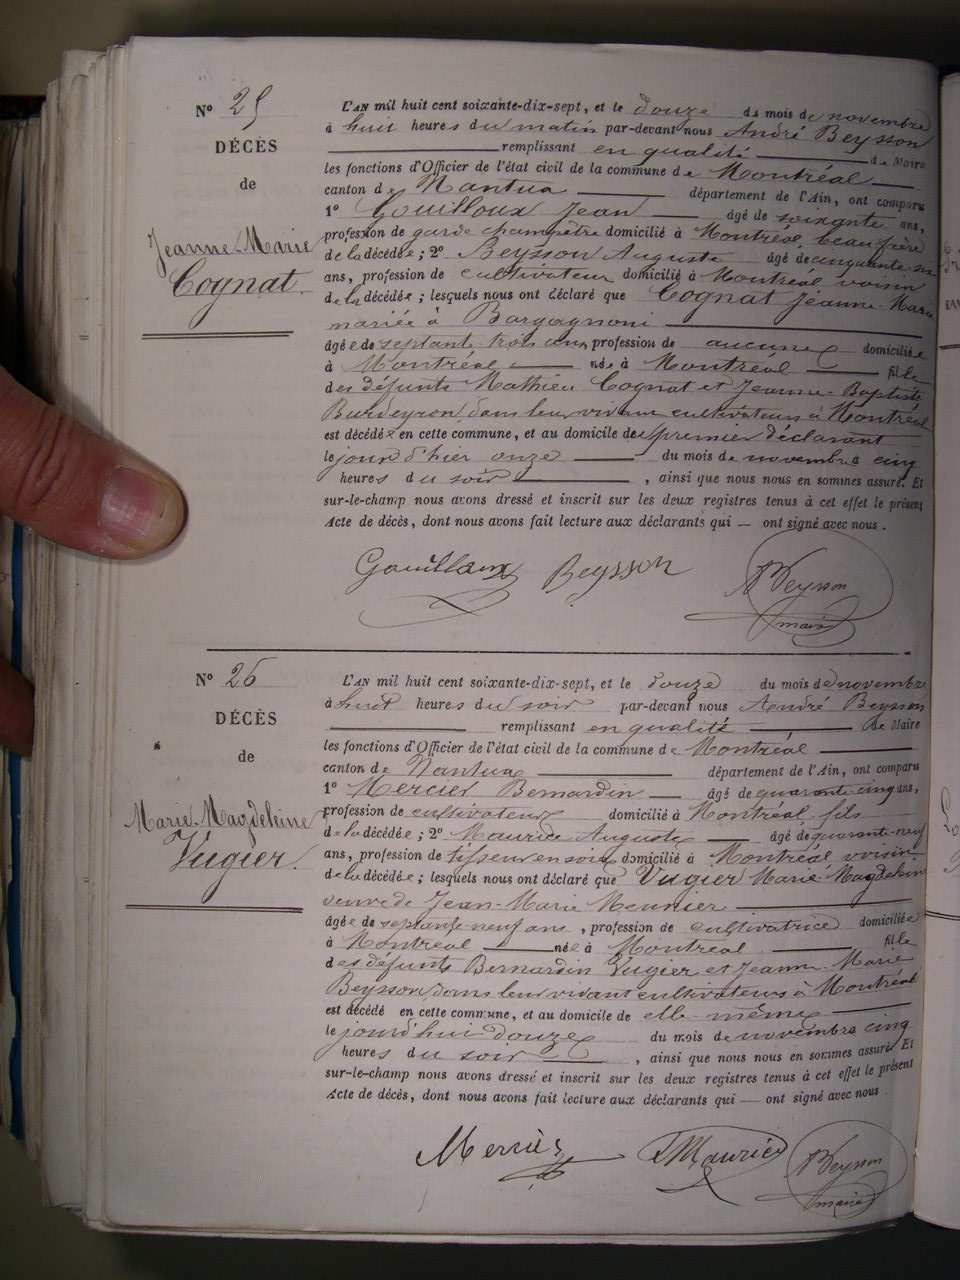 N° 25
DÉCÈS
de
Jeanne-Marie
Cognat.
L'AN mil huit cent soixante-dix-sept, et le douze du mois de novembre
à huit heures du matin par-devant nous André Beysson
remplissant en qualité de Maire
les fonctions d'Officier de l'état civil de la commune de Montréal
canton de Nantua département de l'Ain, ont comparu
1° Gouilloux Jean âgé de soixante ans,
profession de garde champêtre domicilié à Montréal, beau frère
de la décédée ; 2° Beysson Auguste âgé de cinquante-six
ans, profession de cultivateur domicilié à Montréal voisin
de la décédée ; lesquels nous ont déclaré que Cognat Jeanne-Marie
mariée à
âgée de septante-trois ans, profession de aucune domiciliée
à Montréal née à Montréal fille
des défunts Mathieu Cognat et Jeanne-Baptiste
Burdeyron dans leur vivant cultivateurs à Montréal
est décédée en cette commune, et au domicile du premier déclarant
le jour d'hier onze du mois de novembre cinq
heures du soir , ainsi que nous nous en sommes assuré. Et
sur-le-champ nous avons dressé et inscrit sur les deux registres tenus à cet effet le présent
Acte de décès, dont nous avons fait lecture aux déclarants qui — ont signé avec nous .
Gouilloux Beysson Beysson
maire
N° 26
DÉCÈS
de
Marie-Magdeleine
Vugier.
L'AN mil huit cent soixante-dix-sept, et le douze du mois de novembre
à huit heures du soir par-devant nous André Beysson
remplissant en qualité de Maire
les fonctions d'Officier de l'état civil de la commune de Montréal
canton de Nantua département de l'Ain, ont comparu
1° Mercier Bernardin âgé de quarante cinq ans,
profession de cultivateur domicilié à Montréal fils
de la décédée ; 2° Maurice Auguste âgé de quarante-neuf
ans, profession de tisseur en soie domicilié à Montréal voisin
de la décédée ; lesquels nous ont déclaré que Vugier Marie-Magdeleine
veuve de Jean-Marie
âgée de septante-neuf ans , profession de cultivatrice domiciliée
à Montréal née à Montréal fille
des défunts Bernardin Vugier et Jeanne-Marie
Beysson dans leur vivant cultivateurs à Montréal
est décédé en cette commune, et au domicile de elle-même
le jourd'hui douze du mois de novembre cinq
heures du soir , ainsi que nous nous en sommes assuré. Et
sur-le-champ nous avons dressé et inscrit sur les deux registres tenus à cet effet le présent
Acte de décès, dont nous avons fait lecture aux déclarants qui — ont signé avec nous .
Mercier Maurice Beysson
maire